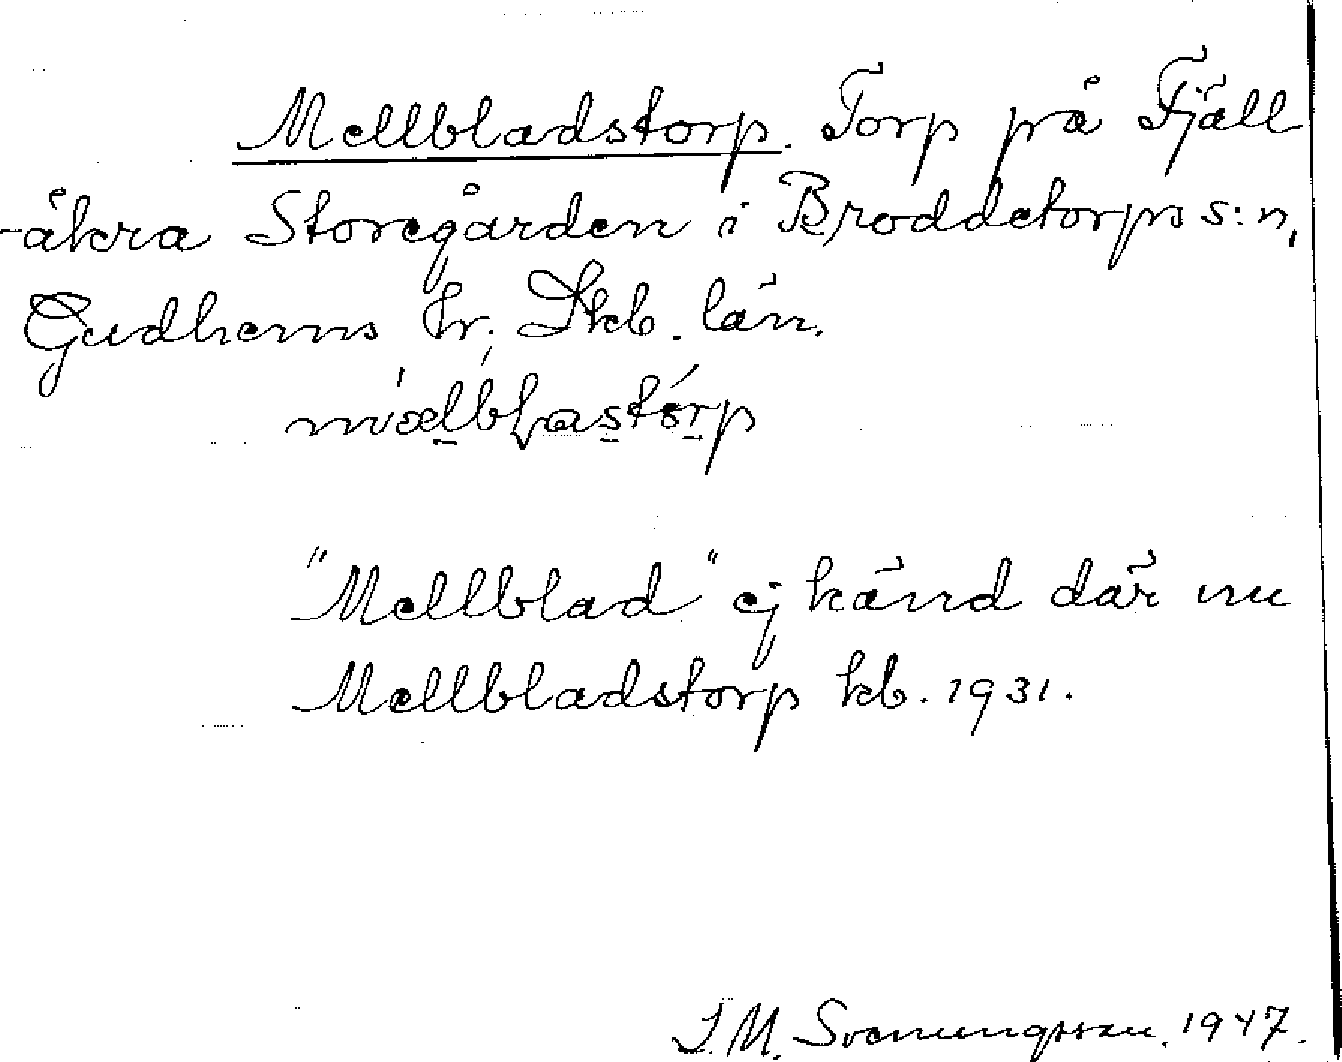 Mellbladstorp. Torp på Fjäll
-åkra Storegården i Broddetorps s:n,
Gudhems hr; Skb. län.
"Mellblad" ej känd där nu
Mellbladstorp kb. 1931.
S. M. Svenungsson. 1947.